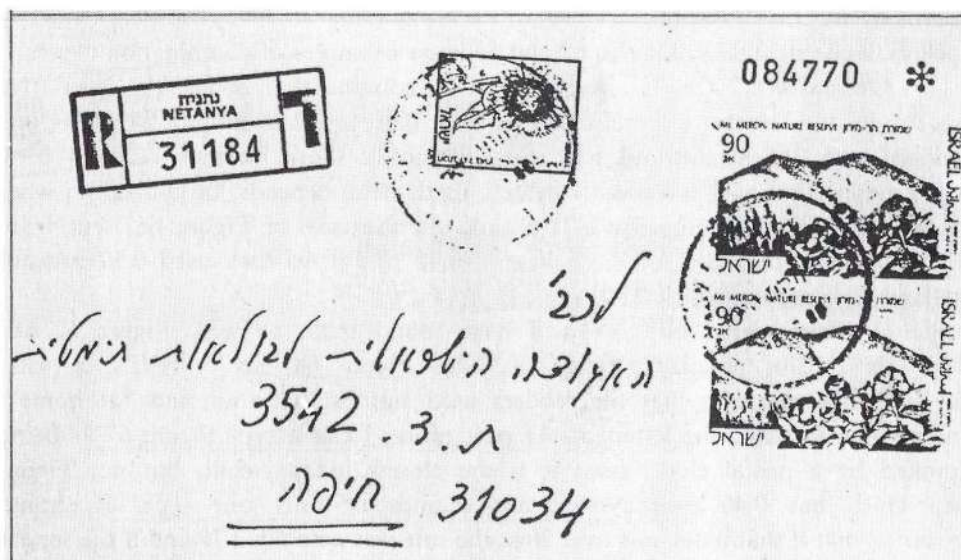 נתניה
NETANYA
R 31184
084770 *
MT. MERON NATURE RESERVE שמורת הר מירון
90
ISRAEL
ישראל
MT. MERON NATURE RESERVE שמורת הר מירון
90
ISRAEL
ישראל
לכב'
האגודה הישראלית לבולאות תמטית
ת.ד. 3542
חיפה 31034